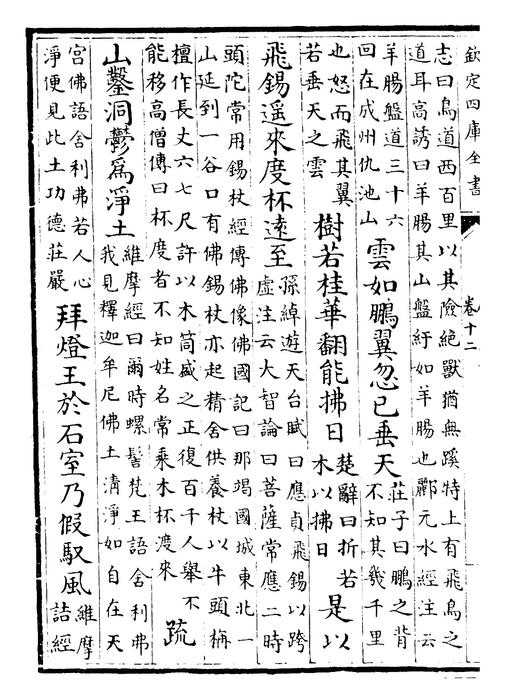 欽定四庫全書
卷十二
志曰鳥道西百里以其險絶獸猶無蹊特上有飛鳥之
道耳高誘曰羊腸其山盤紆如羊腸也酈元水經注云
羊腸盤道三十六
回在成州仇池山
雲如鵬翼忽已垂天
莊子曰鵬之背
不知其幾千里
也怒而飛其翼
若垂天之雲
樹若桂華翻能拂日
楚辭曰折若
木以拂日
是以
飛錫遥來度杯遠至
孫綽遊天台賦曰應貞飛錫以跨
虛注云大智論曰菩薩常應二時
頭陀常用錫杖經傳佛像佛國記曰那竭國城東北一
山延到一谷口有佛錫杖亦起精舍供養杖以牛頭栴
檀作長丈六七尺許以木筒盛之正復百千人舉不
能移高僧傳曰杯度者不知姓名常乘木杯渡來
疏
山鑿洞鬱為淨土
維摩經曰爾時螺髻梵王語舍利弗
我見釋迦牟尼佛土清淨如自在天
宫佛語舍利弗若人心
淨便見此土功德莊嚴
拜燈王於石室乃假馭風
維摩
詰經